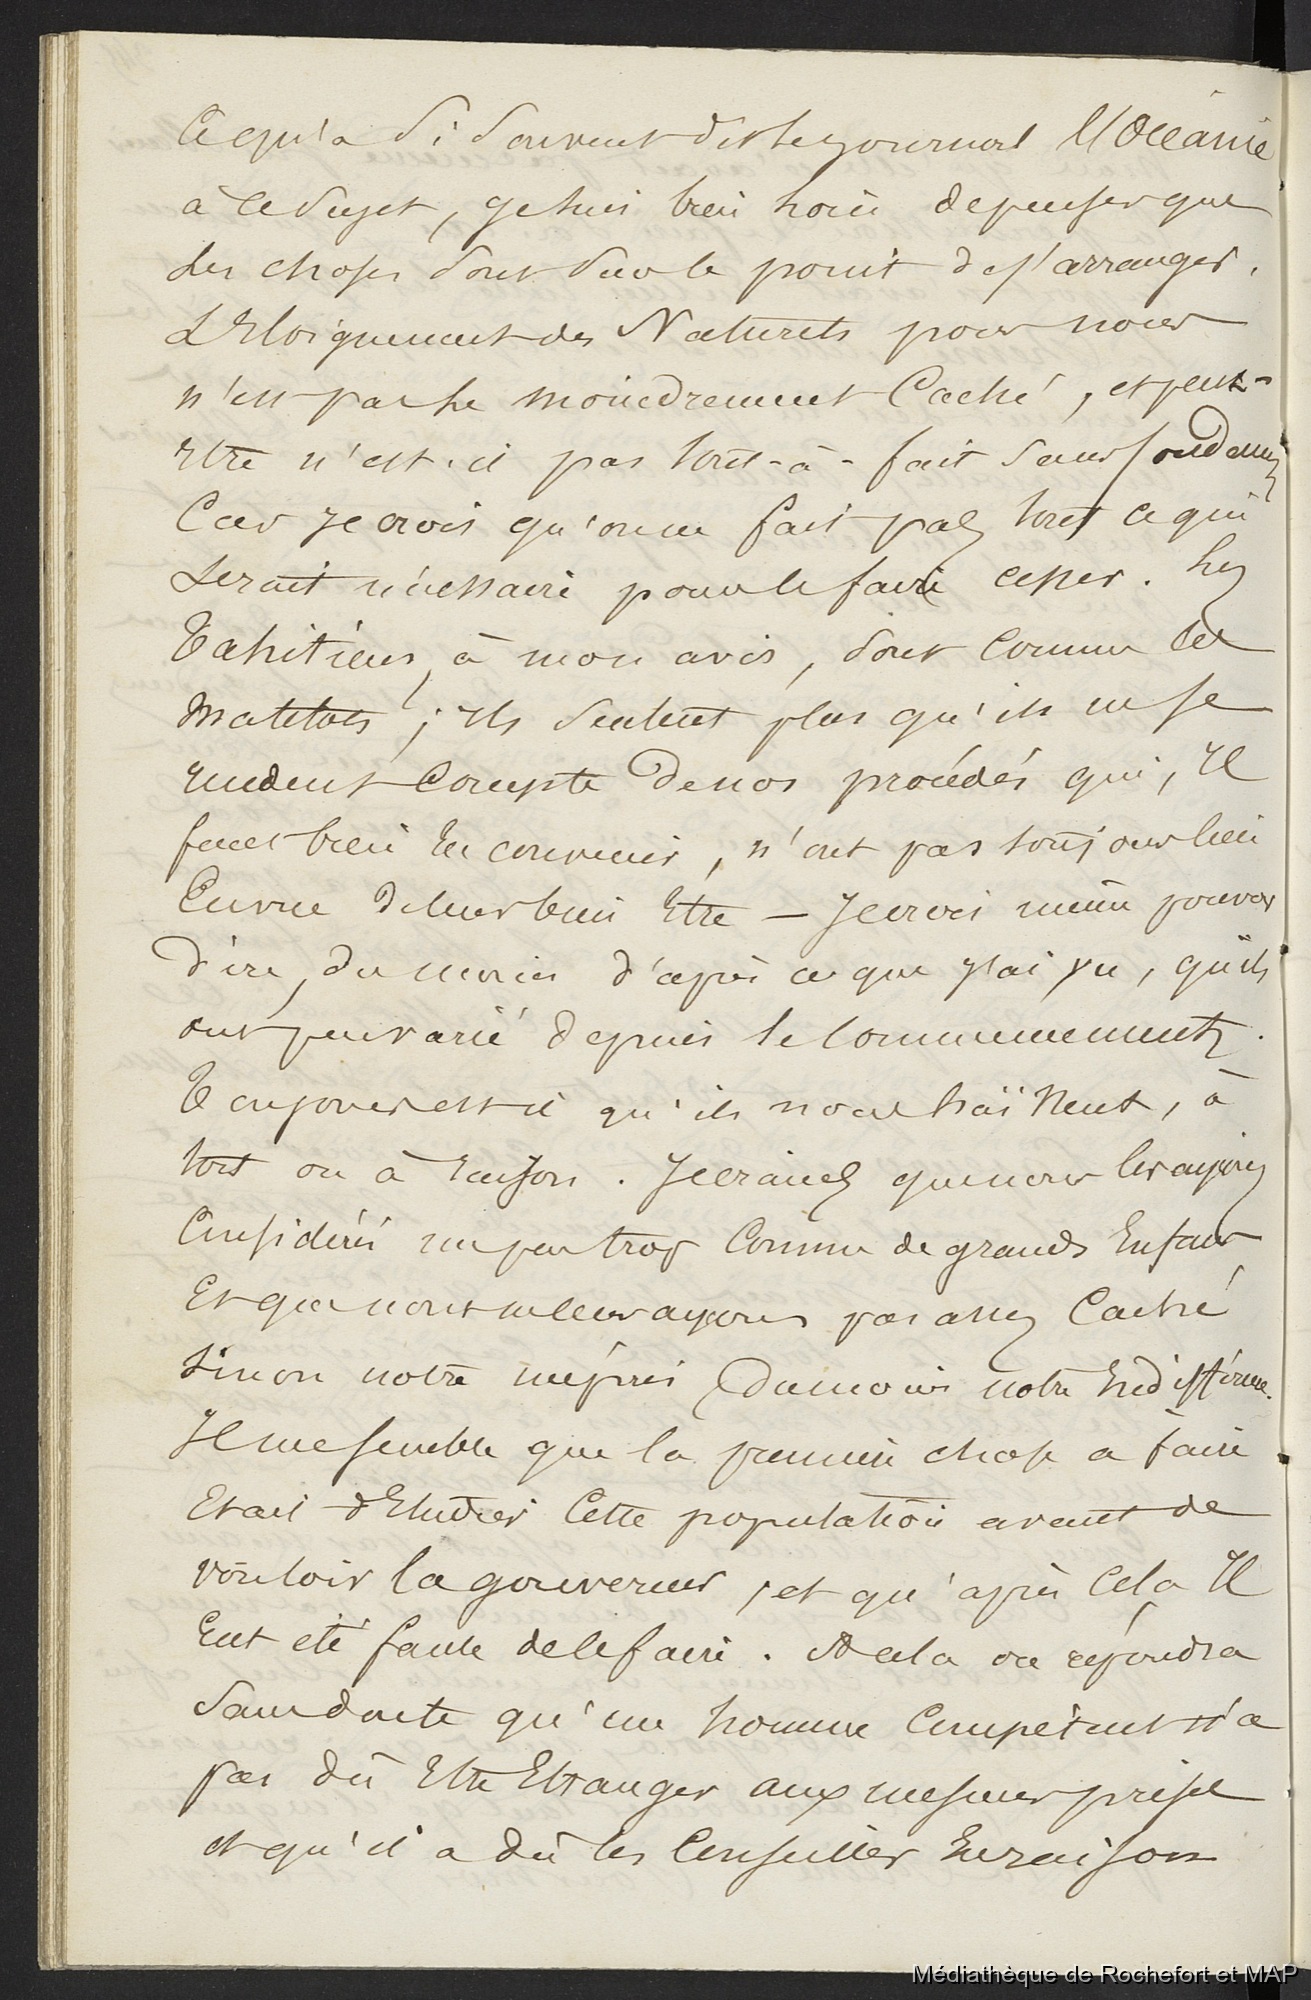 Ce qu'a Si Souvent dit le journal l'Océanie
à ce Sujet, je suis bien loin de penser que
Les choses Sont Sur le point de s'arranger.
L'Eloignement des Naturels pour nous
n'est pas le moindrement Caché, et peut-
Etre n'est-il pas tout-à-fait Sans fondemt
Car je crois qu'on ne fait pas tout ce qui
Serait nécessaire pour le faire cesser. Les
Tahitiens, à mon avis, Sont Comme les
Matelots; ils Sentent plus qu'ils ne se
rendent Compte de nos procédés qui, Il
faut bien En convenir, n'ont pas toujours bien
En vue de leur bien Etre — Je crois même pouvoir
dire, du moins d'après ce que j'ai vu, qu'ils
ont peu varié depuis le Commencement.
Toujours est-il qu'ils nous haïssent, à
tort ou à raison. Je crains que nous les ayions
Considérés un peu trop Comme de grands Enfans
Et que nous ne leur ayions pas assez Caché
Sinon notre mépris, du moins notre Indifférence.
Il me semble que la première chose a faire
Etait d'Etudier Cette population avant de
vouloir la gouverner, et qu'après Cela Il
Eut été facile de le faire. A cela on répondra
Sans doute qu'un homme Compétent n'a
pas dû Etre Etranger aux mesures prises
et qu'il a dû les Conseiller En raison
Médiathèque de Rochefort et MAP